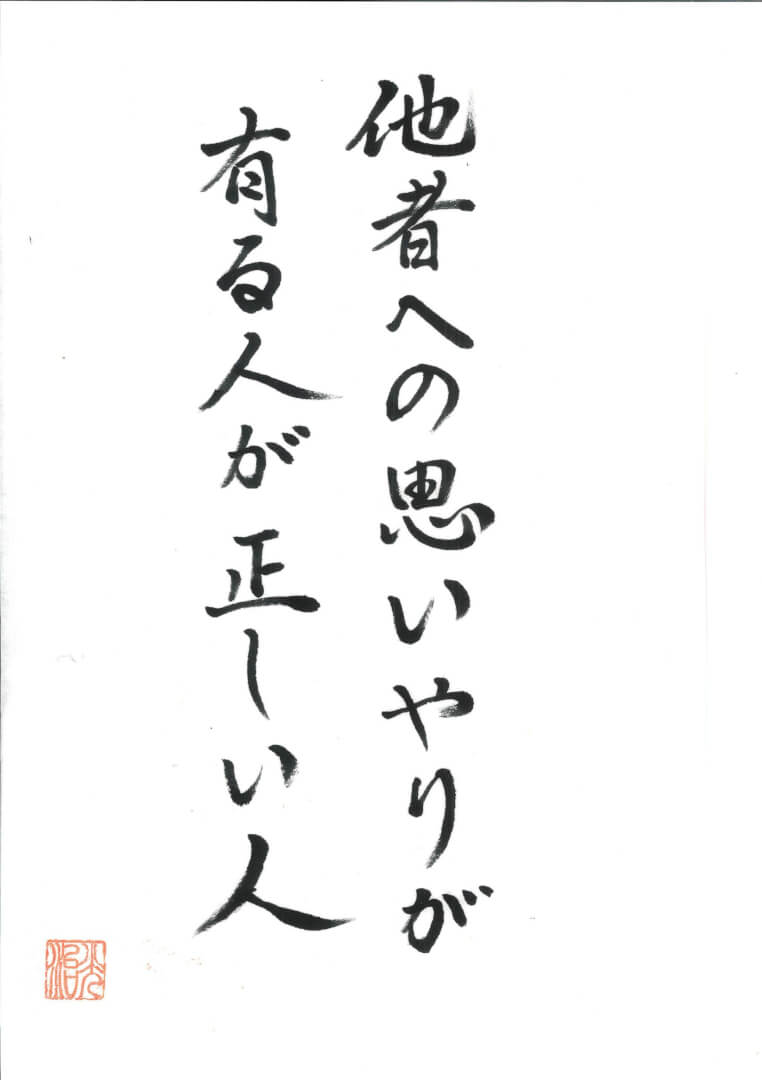 他者への思いやりが
有る人が正しい人